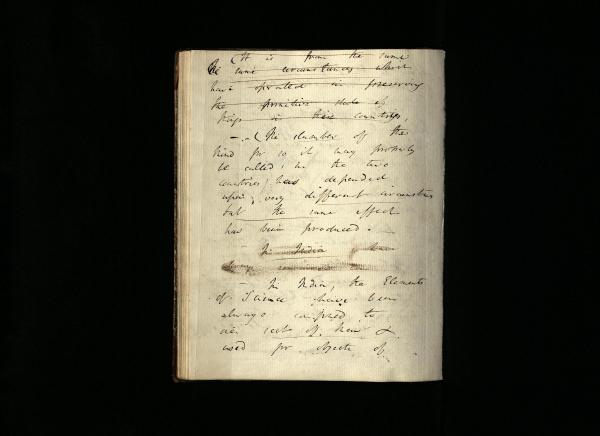 (It is from the same
the same circumstances which
have operated in preserving
the primitive state of
things in these countries,
—.( The slumber of the
mind for so it may properly
be called, in the two
countries, has depended
upon very different circumstances
but the same effect
has been produced. —
— In India
always
— In India, the Elements
of Science have been
always confined to
one sect of Men &
used for objects of